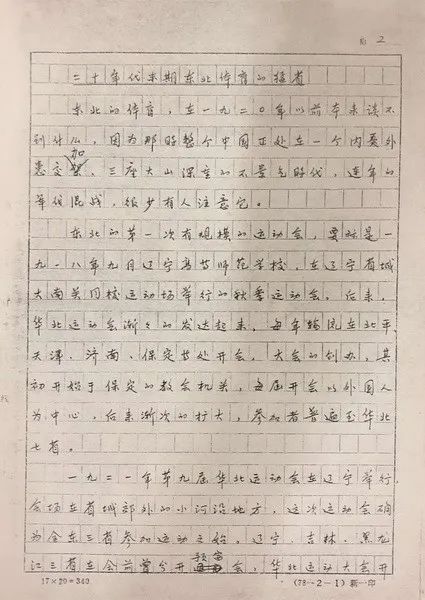 2
二十年代末期东北体育的猛省
东北的体育，在一九二〇年以前本来谈不
到什么，因为那时整个中国正处在一个内忧外
患交加、三座大山深重的不景气时代，连年的
军伐混战，很少有人注意它。
东北的第一次有规模的运动会，要算是一
九一八年九月辽宁高等师范学校，在辽宁省城
大南关同校运动场举行的秋季运动会。后来，
华北运动会渐々的发达起来，每年轮流在北平、
天津、济南、保定等处开会，大会的创办，其
初开始于保定的教会机关，每届开会以外国人
为中心，后来渐次的扩大，参加者普遍至华北
七省。
一九二一年第九届华北运动会在辽宁举行
会场在省城郊外的小河沿地方，这次运动会确
为全东三省参加运动之始，辽宁、吉林、黑龙
江三省在会前曾分开预备会，华北运动大会开
17×20＝340
(78－2－1) 新一印